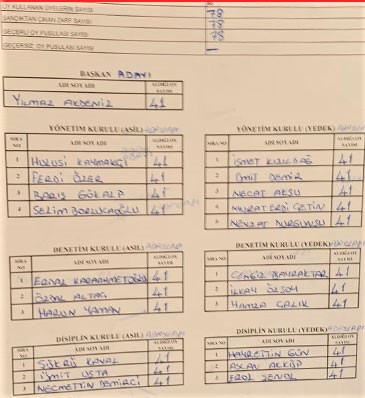 OY KULLANAN ÜYELERİN SAYISI 78
SANDIKTAN ÇIKAN ZARF SAYISI 78
GEÇERLİ OY PUSULASI SAYISI 78
GEÇERSİZ OY PUSULASI SAYISI —
BAŞKAN ADAYI
ADI SOYADI ALDIĞI OY SAYISI
YILMAZ AKDENİZ 41
YÖNETİM KURULU (ASİL)
SIRA NO ADI SOYADI ALDIĞI OY SAYISI
1 HULUSİ KAYMAKÇI 41
2 FERDİ ÖZER 41
3 BARIŞ GÖKALP 41
4 SELİM 41
YÖNETİM KURULU (YEDEK)
SIRA NO ADI SOYADI ALDIĞI OY SAYISI
1 İSMET 41
2 ÜMİT DEMİR 41
3 NECAT AKSU 41
4 MURAT ÇETİN 41
5 NEVZAT 41
DENETİM KURULU (ASİL)
SIRA NO ADI SOYADI ALDIĞI OY SAYISI
1 ERDAL KARAAHMETOĞLU 41
2 ÖZDAL ALTAŞ 41
3 HARUN YAMAN 41
DENETİM KURULU (YEDEK)
SIRA NO ADI SOYADI ALDIĞI OY SAYISI
1 CENGİZ BAYRAKTAR 41
2 İLKAY ÖZSOY 41
3 HAMZA ÇALIK 41
DİSİPLİN KURULU (ASİL)
SIRA NO ADI SOYADI ALDIĞI OY SAYISI
1 ŞÜKRÜ KAVAL 41
2 ÜMİT USTA 41
3 NECMETTİN DEMİRCİ 41
DİSİPLİN KURULU (YEDEK)
SIRA NO ADI SOYADI ALDIĞI OY SAYISI
1 HAYRETTİN GÜN 41
2 ASLAN 41
3 EROL ŞENOL 41